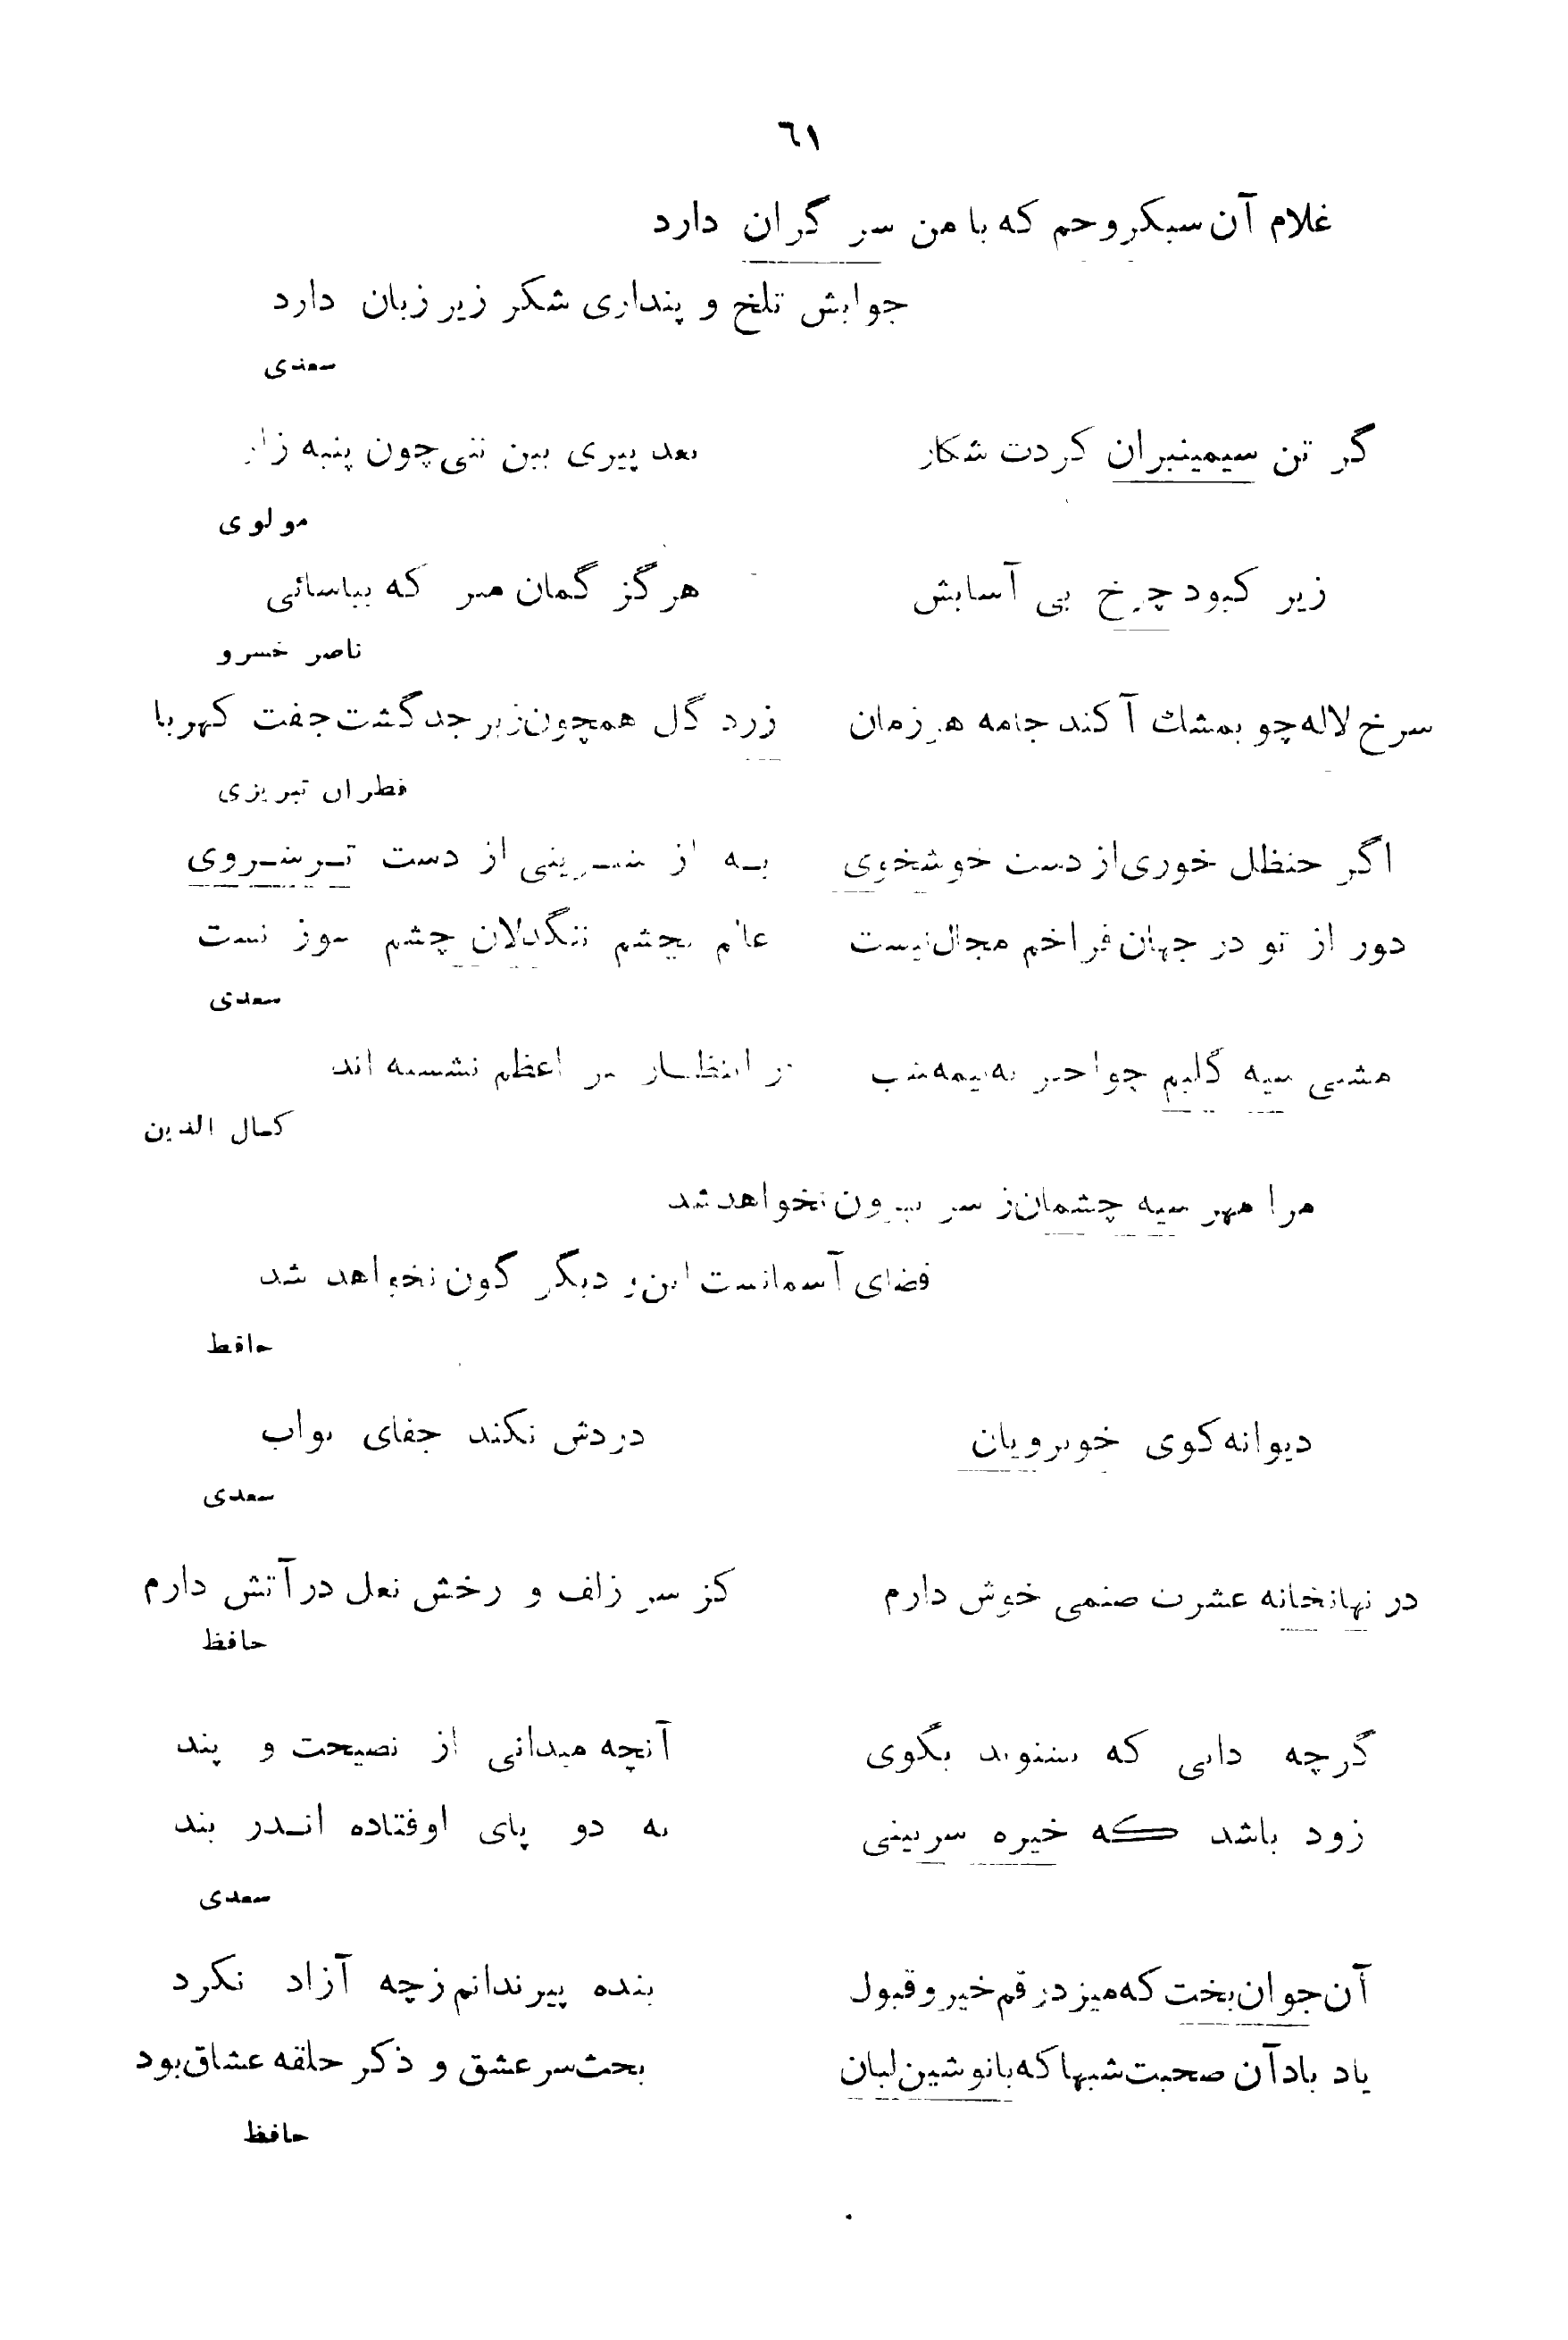 ٦١
غلام آن سبکروحم که با من سر گران دارد
جوابش تلخ و پنداری شکر زیر زبان دارد
سعدی
گر تن سیمینبران کردت شکار	بعد پیری بین تنی چون پنبه زار
مولوی
زیر کبود چرخ بی آسایش	هرگز گمان مبر که بیاسائی
ناصر خسرو
سرخ لاله چو بمشك آکند جامه هر زمان	زرد گل همچون زبرجد گشت جفت کهربا
قطران تبریزی
اگر حنظل خوری از دست خوشخوی	بـه از شیـرینی از دست تـرشـروی
دور از تو در جهان فراخم مجال نیست	عالم بچشم تنگدلان چشم سوزنست
سعدی
مشتی سیه گلیم چو احبر به نیمه شب	در انتظـار اعظم نشسته اند
کمال الدین
مرا مهر سیه چشمان ز سر بیرون نخواهد شد
قضای آسمانست این و دیگر گون نخواهد شد
حافظ
دیوانه کوی خوبرویان	دردش نکند جفای بواب
سعدی
در نهانخانه عشرت صنمی خوش دارم	کز سر زلف و رخش نعل در آتش دارم
حافظ
گرچه دانی که نشنوند بگوی	آنچه میدانی از نصیحت و پند
زود باشد که خیره سر بینی	به دو پای اوفتاده انـدر بند
سعدی
آن جوان بخت که میزد رقم خیر و قبول	بنده پیر ندانم زچه آزاد نکرد
یاد باد آن صحبت شبها که با نوشین لبان	بحث سر عشق و ذکر حلقه عشاق بود
حافظ